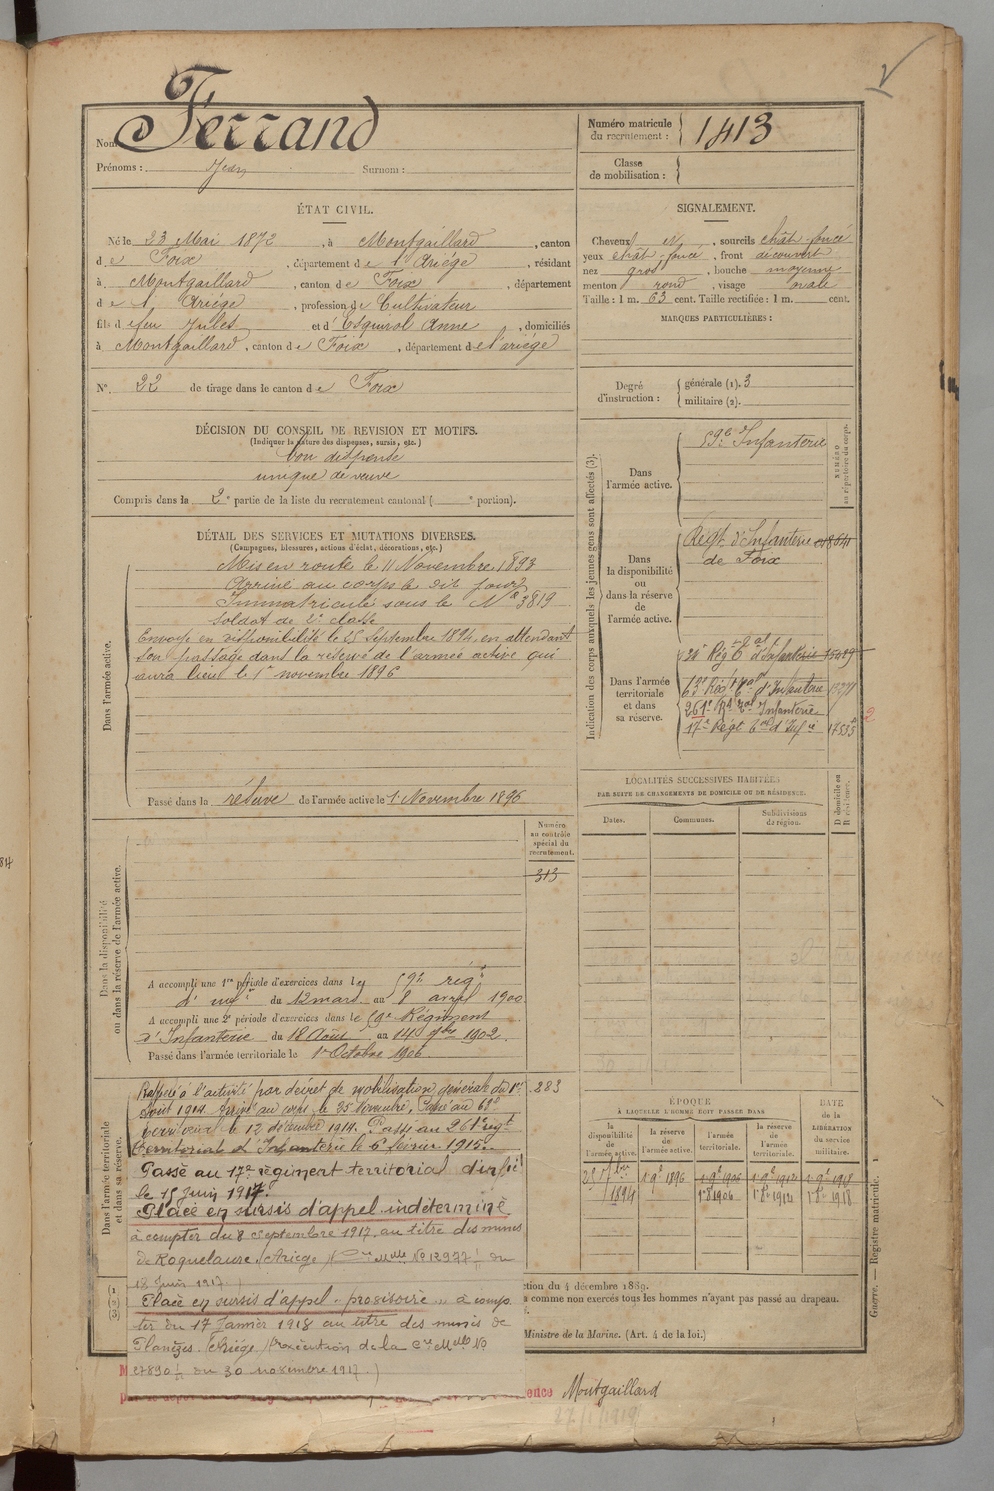 Nom Ferrand
Prénoms : Jean Surnom :
Numéro matricule du recrutement : 1413
Classe de mobilisation :
ÉTAT CIVIL.
Né le 23 Mai 1872, à Montgaillard, canton
de Foix, département de l'Ariége, résidant
à Montgaillard, canton de Foix, département
de l'Ariége, profession de Cultivateur
fils de feu Jules et d'Esquirol Anne, domiciliés
à Montgaillard, canton de Foix, département de l'ariége
N° 22 de tirage dans le canton de Foix
DÉCISION DU CONSEIL DE REVISION ET MOTIFS.
(Indiquer la nature des dispenses, sursis, etc.)
bon dispense
unique de veuve
Compris dans la 2e partie de la liste du recrutement cantonal ( e portion).
DÉTAIL DES SERVICES ET MUTATIONS DIVERSES.
(Campagnes, blessures, actions d'éclat, décorations, etc.)
Dans l'armée active.
Mis en route le 11 Novembre 1893
Arrivé au corps le dit jour
Immatriculé sous le N° 3819
Soldat de 2e classe
Envoyé en disponibilité le 25 Septembre 1894, en attendant
son passage dans la réserve de l'armée active qui
aura lieu le 1er novembre 1896
Passé dans la réserve de l'armée active le 1er Novembre 1896
Dans la disponibilité
ou dans la réserve de l'armée active.
Numéro
au contrôle
spécial du
recrutement.
313
A accompli une 1re période d'exercices dans le 59e rég.t
d'inf.ie du 12 mars au 8 avril 1900
A accompli une 2e période d'exercices dans le 59e Régiment
d'Infanterie du 18 Août au 14 7bre 1902.
Passé dans l'armée territoriale le 1er Octobre 1906
Dans l'armée territoriale
et dans sa réserve.
283
Rappelé à l'activité par décret de mobilisation générale du 1er
Août 1914. Arrivé au corps le 25 Novembre, Passé au 63e
territorial le 12 décembre 1914. Passé au 261e régt
territorial d'Infanterie le 6 février 1915.
Passé au 17e régiment territorial d'infie
le 15 Juin 1917.
Placé en sursis d'appel indéterminé
à compter du 8 septembre 1917, au titre des mines
de Roquelaure (Ariège) (Cre Mlle N° 13977 du
18 Juin 1917.)
Placé en sursis d'appel "provisoire" à comp-
ter du 17 Janvier 1918 au titre des mines de
Planèzes. (Ariége) (exécution de la Cre Mlle N°
27890 du 30 novembre 1917.)
SIGNALEMENT.
Cheveux et, sourcils chât. foncé
yeux chât. foncé, front découvert
nez gros, bouche moyenne
menton rond, visage ovale
Taille : 1 m. 63 cent. Taille rectifiée : 1 m. cent.
MARQUES PARTICULIÈRES :
Degré d'instruction : générale (1). 3
militaire (2).
Indication des corps auxquels les jeunes gens sont affectés (3).
NUMÉRO
au répertoire du corps.
Dans
l'armée active.
59e d'Infanterie
Dans
la disponibilité
ou
dans la réserve
de
l'armée active.
Régt d'Infanterie
de Foix
Dans l'armée
territoriale
et dans
sa réserve.
63e Rég.t Tal d'Infanterie
261e Rt Tal Infanterie
17e Régt Tal d'Infie
2
LOCALITÉS SUCCESSIVES HABITÉES
PAR SUITE DE CHANGEMENTS DE DOMICILE OU DE RÉSIDENCE.
Dates. Communes. Subdivisions de région. D domicile ou R résidence.
ÉPOQUE
À LAQUELLE L'HOMME DOIT PASSER DANS
DATE
de la
LIBÉRATION
du service
militaire.
la disponibilité de l'armée active. la réserve de l'armée active. l'armée territoriale. la réserve de l'armée territoriale.
25 7bre 1894 1er 9e 1896 1er 9e 1906 1er 9e 1912 1er 9e 1918
1er 8e 1906 1er 8e 1912 1er 8e 1918
(1)
(2)
(3)
ction du 4 décembre 1889.
a comme non exercés tous les hommes n'ayant pas passé au drapeau.
Ministre de la Marine. (Art. 4 de la loi.)
ence Montgaillard
27/1/1919
Guerre. — Registre matricule. 1.